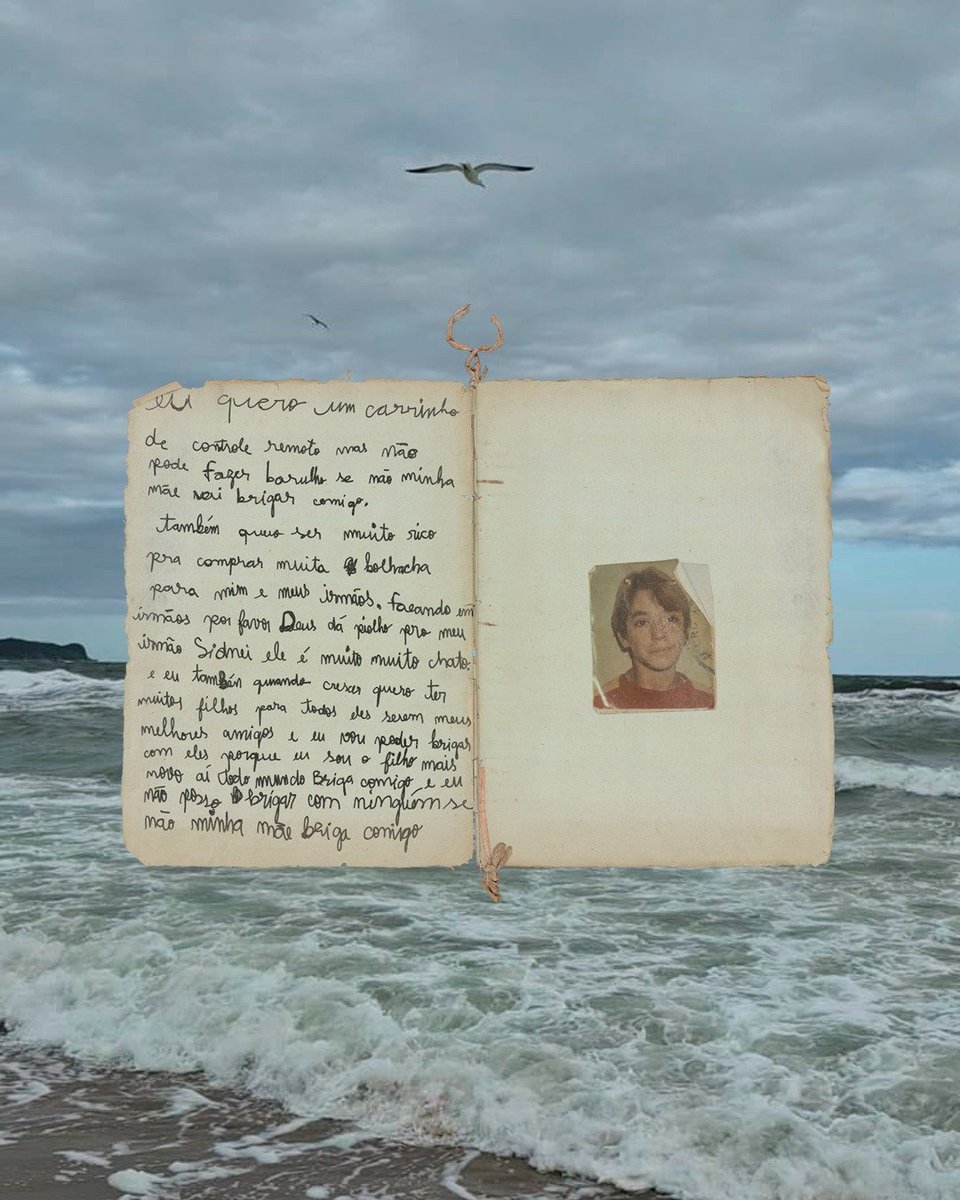 eu quero um carrinho
de controle remoto mas não
pode fazer barulho se não minha
mãe vai brigar comigo.
também quero ser muito rico
pra comprar muita bolhacha
para mim e meus irmãos. faeando em
irmãos por favor Deus dá piolho pro meu
irmão Sidnei ele é muito muito chato.
e eu também quando crescer quero ter
muitos filhos para todos eles serem meus
melhores amigos e eu vou poder brigar
com eles porque eu sou o filho mais
novo aí todo mundo Briga comigo e eu
não posso brigar com ninguém se
não minha mãe briga comigo